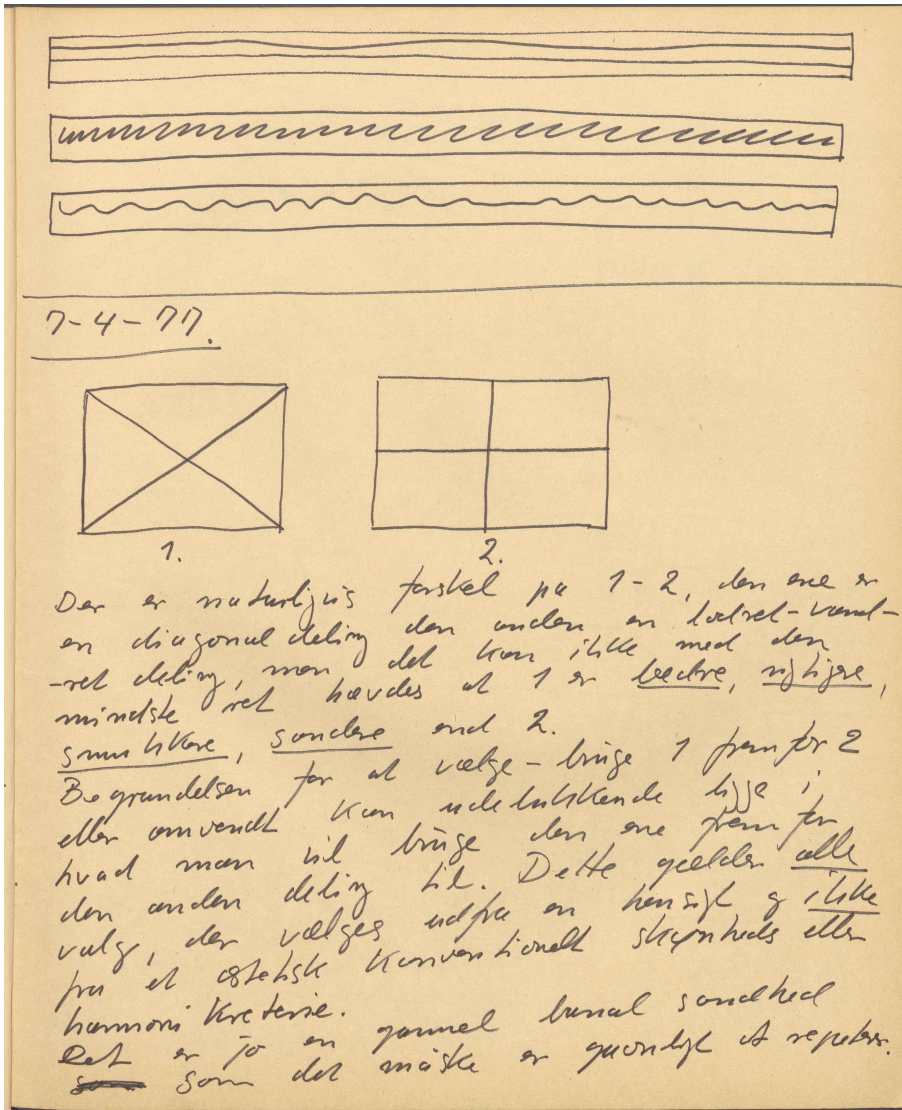 7-4-77.
1. 2.
Der er naturligvis forskel på 1-2, den ene er
en diagonal deling den anden en lodret-vand-
-ret deling, men det kan ikke med den
mindste ret hævdes at 1 er bedre, rigtigere,
smukkere, sandere end 2.
Begrundelsen for at vælge - bruge 1 frem for 2
eller omvendt kan udelukkende ligge i
hvad man vil bruge den ene frem for
den anden deling til. Dette gælder alle
valg, der vælges udfra en hensigt og ikke
fra et æstetisk konventionelt skønheds eller
harmoni kreterie.
Det er jo en gammel banal sandhed
som det måske er gavnligt at repetere.